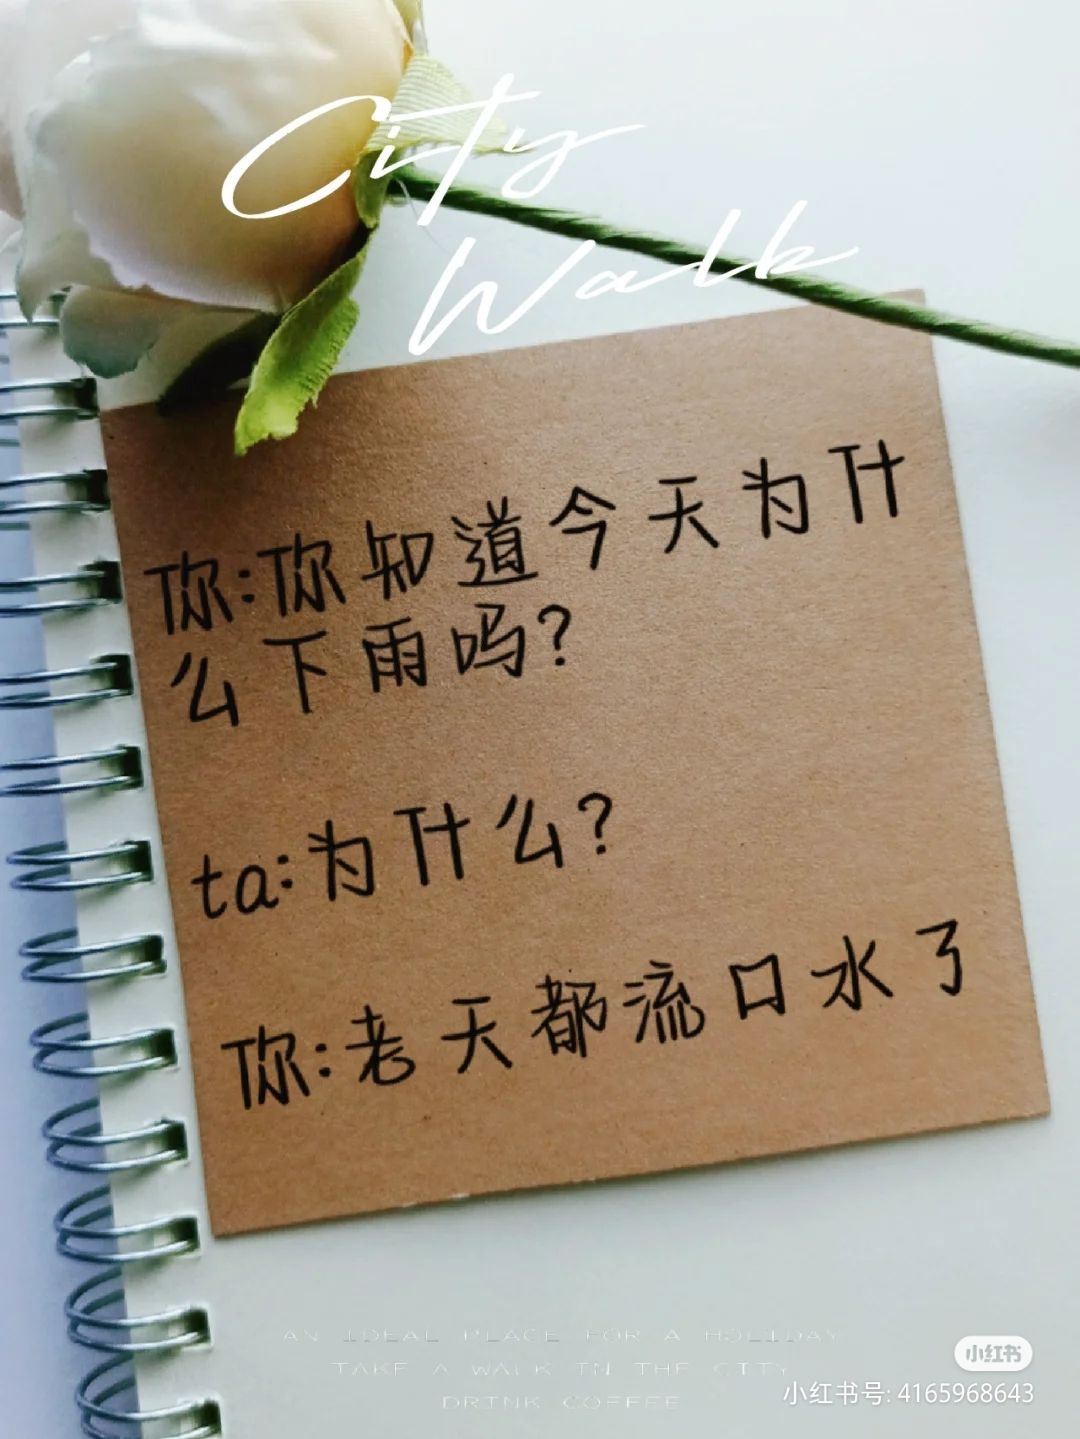 City
Walk
你:你知道今天为什
么下雨吗?
ta:为什么?
你:老天都流口水了
AN IDEAL PLACE FOR A HOLIDAY
TAKE A WALK IN THE CITY
DRINK COFFEE
小红书
小红书号: 4165968643